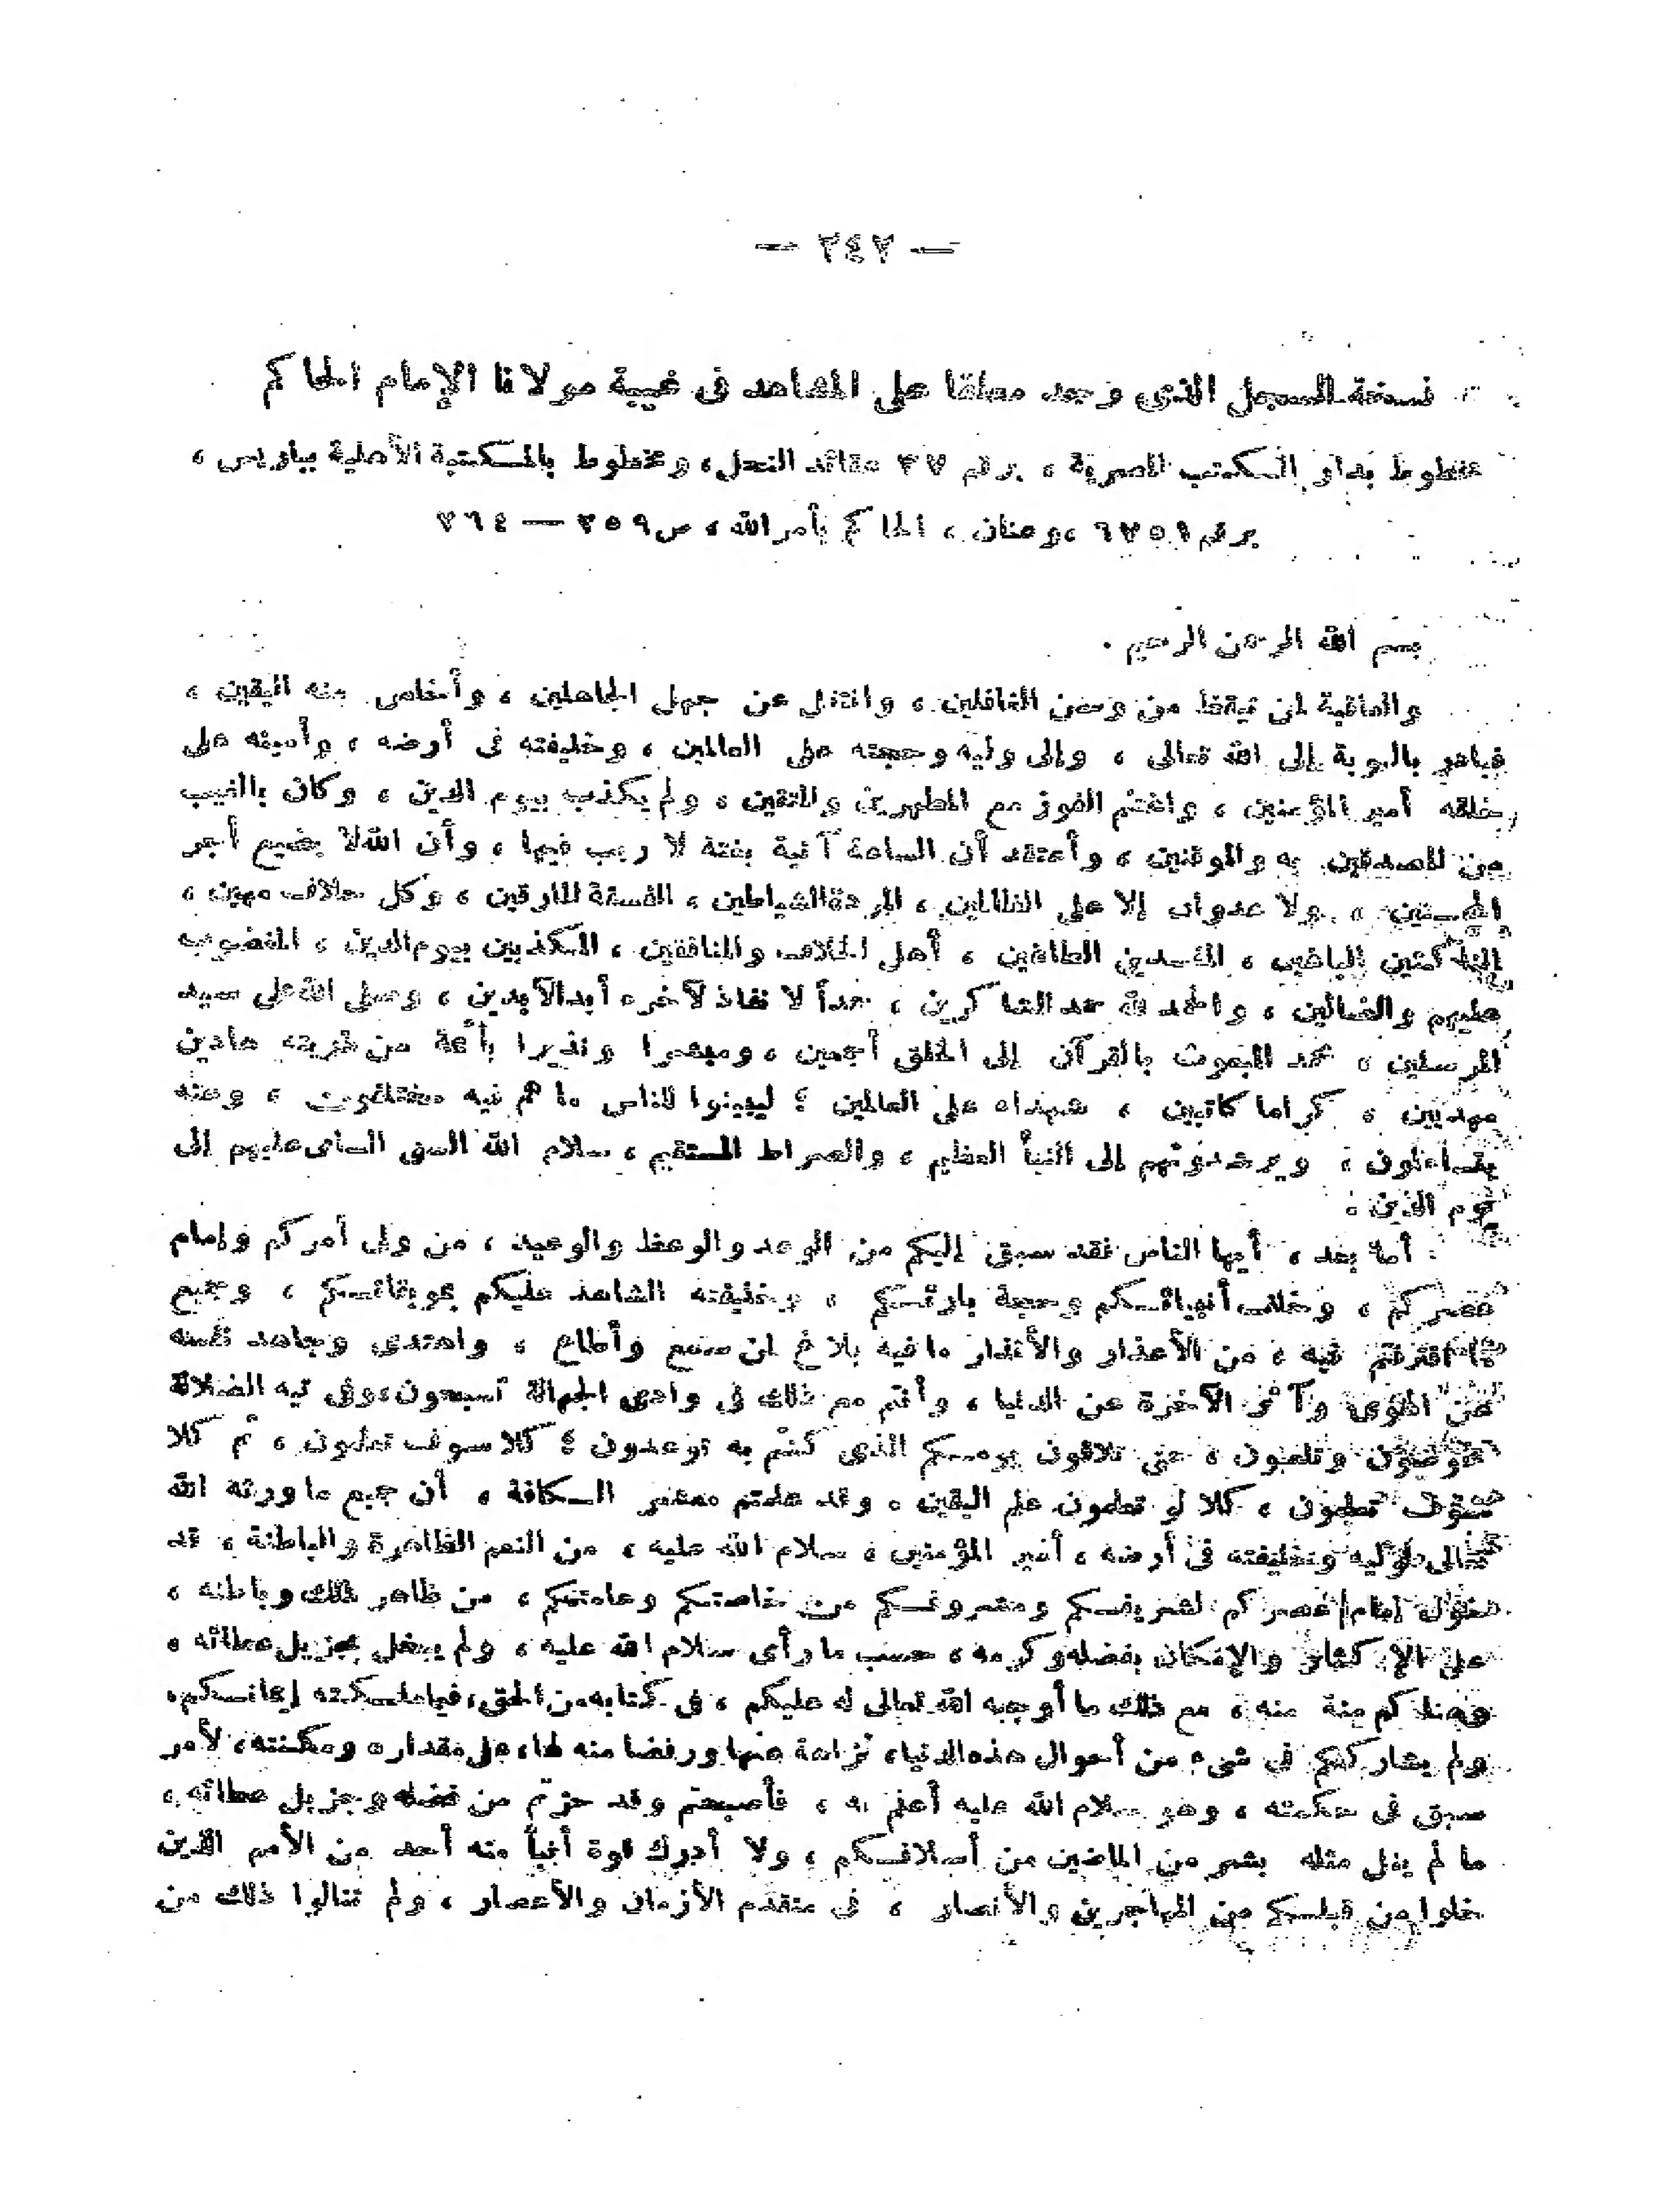 — ٢٤٧ —
نسخة السجل الذى وجد معلقا على المشاهد فى غيبة مولانا الإمام الحاكم
مخطوط بدار الكتب المصرية ، برقم ٣٧ عقائد النحل، ومخطوط بالمكتبة الأهلية بباريس ،
برقم ، وعنان ، الحاكم بأمر الله ، ص
بسم الله الرحمن الرحيم .
والعاقبة لمن تيقظ من وسن الغافلين ، وانتقل عن جهل الجاهلين ، وأخلص منه اليقين ،
فبادر بالتوبة إلى الله تعالى ، وإلى وليه وحجته على العالمين ، وخليفته فى أرضه ، وأمينه على
خلقه أمير المؤمنين ، واغتنم الفوز مع المطهرين والمتقين ، ولم يكذب بيوم الدين ، وكان بالغيب
من المصدقين به والموقنين ، وأعتقد أن الساعة آتية بغتة لا ريب فيها ، وأن الله لا يضيع أجر
المحسنين ، ولا عدوان إلا على الظالمين ، المردة الشياطين ، الفسقة المارقين ، وكل حلاف مهين ،
الناكثين الباغين ، المفسدين الطاغين ، أهل الخلاف والمنافقين ، المكذبين بيوم الدين ، المغضوب
عليهم والضالين ، والحمد لله حمد الشاكرين ، حمداً لا نفاذ لآخره أبد الآبدين ، وصلى الله على سيد
المرسلين ، محمد المبعوث بالقرآن إلى الخلق أجمعين ، ومبشرا ونذيرا بأئمة من ذريته هادين
مهديين ، كراما كاتبين ، شهداء على العالمين ؛ ليبينوا للناس ما هم فيه مختلفون ، وعنه
يتساءلون ، ويرشدونهم إلى النبأ العظيم ، والصراط المستقيم ، سلام الله السنى السامى عليهم إلى
يوم الدين .
أما بعد ، أيها الناس فقد سبق إليكم من الوعد والوعظ والوعيد ، من ولى أمركم وإمام
عصركم ، وخلف أنبيائكم وحجة بارئكم ، وخليفته الشاهد عليكم بموبقاتكم ، وجميع
ما اقترفتم فيه ، من الأعذار والأنذار ما فيه بلاغ لمن سمع وأطاع ، واهتدى وجاهد نفسه
عن الهوى وآثر الآخرة عن الدنيا ، وأنتم مع ذلك فى وادى الجهالة تسبحون، وفى تيه الضلالة
تخوضون وتلعبون ، حتى تلاقون يومكم الذى كنتم به توعدون ؛ كلا سوف تعلمون ، ثم كلا
سوف تعلمون ، كلا لو تعلمون علم اليقين . وقد علمتم معشر الكافة ، أن جميع ما ورثه الله
تعالى لوليه وخليفته فى أرضه ، أمير المؤمنين ، سلام الله عليه ، من النعم الظاهرة والباطنة ، قد
خول إمام عصركم لشريفكم ومشروفكم من خاصتكم وعامتكم ، من ظاهر ذلك وباطنه ،
على الإكثار والإمكان بفضله وكرمه ، حسب ما رأى سلام الله عليه ، ولم يبخل بجزيل عطائه ،
وهناكم منة منه ، مع ذلك ما أوجبه الله تعالى له عليكم ، فى كتابه من الحق، فيما ملكته إيمانكم،
ولم يشارككم فى شىء من أحوال هذه الدنيا، نزاهة عنها ورفضا منه لها، على مقداره ومكنته، لأمر
سبق فى حكمته ، وهو سلام الله عليه أعلم به ، فأصبحتم وقد حزتم من فضله وجزيل عطائه ،
ما لم ينل مثله بشر من الماضين من أسلافكم ، ولا أدرك قوة منه أحد من الأمم الذين
خلوا من قبلكم من المهاجرين والأنصار ، فى متقدم الأزمان والأعصار ، ولم تنالوا ذلك من